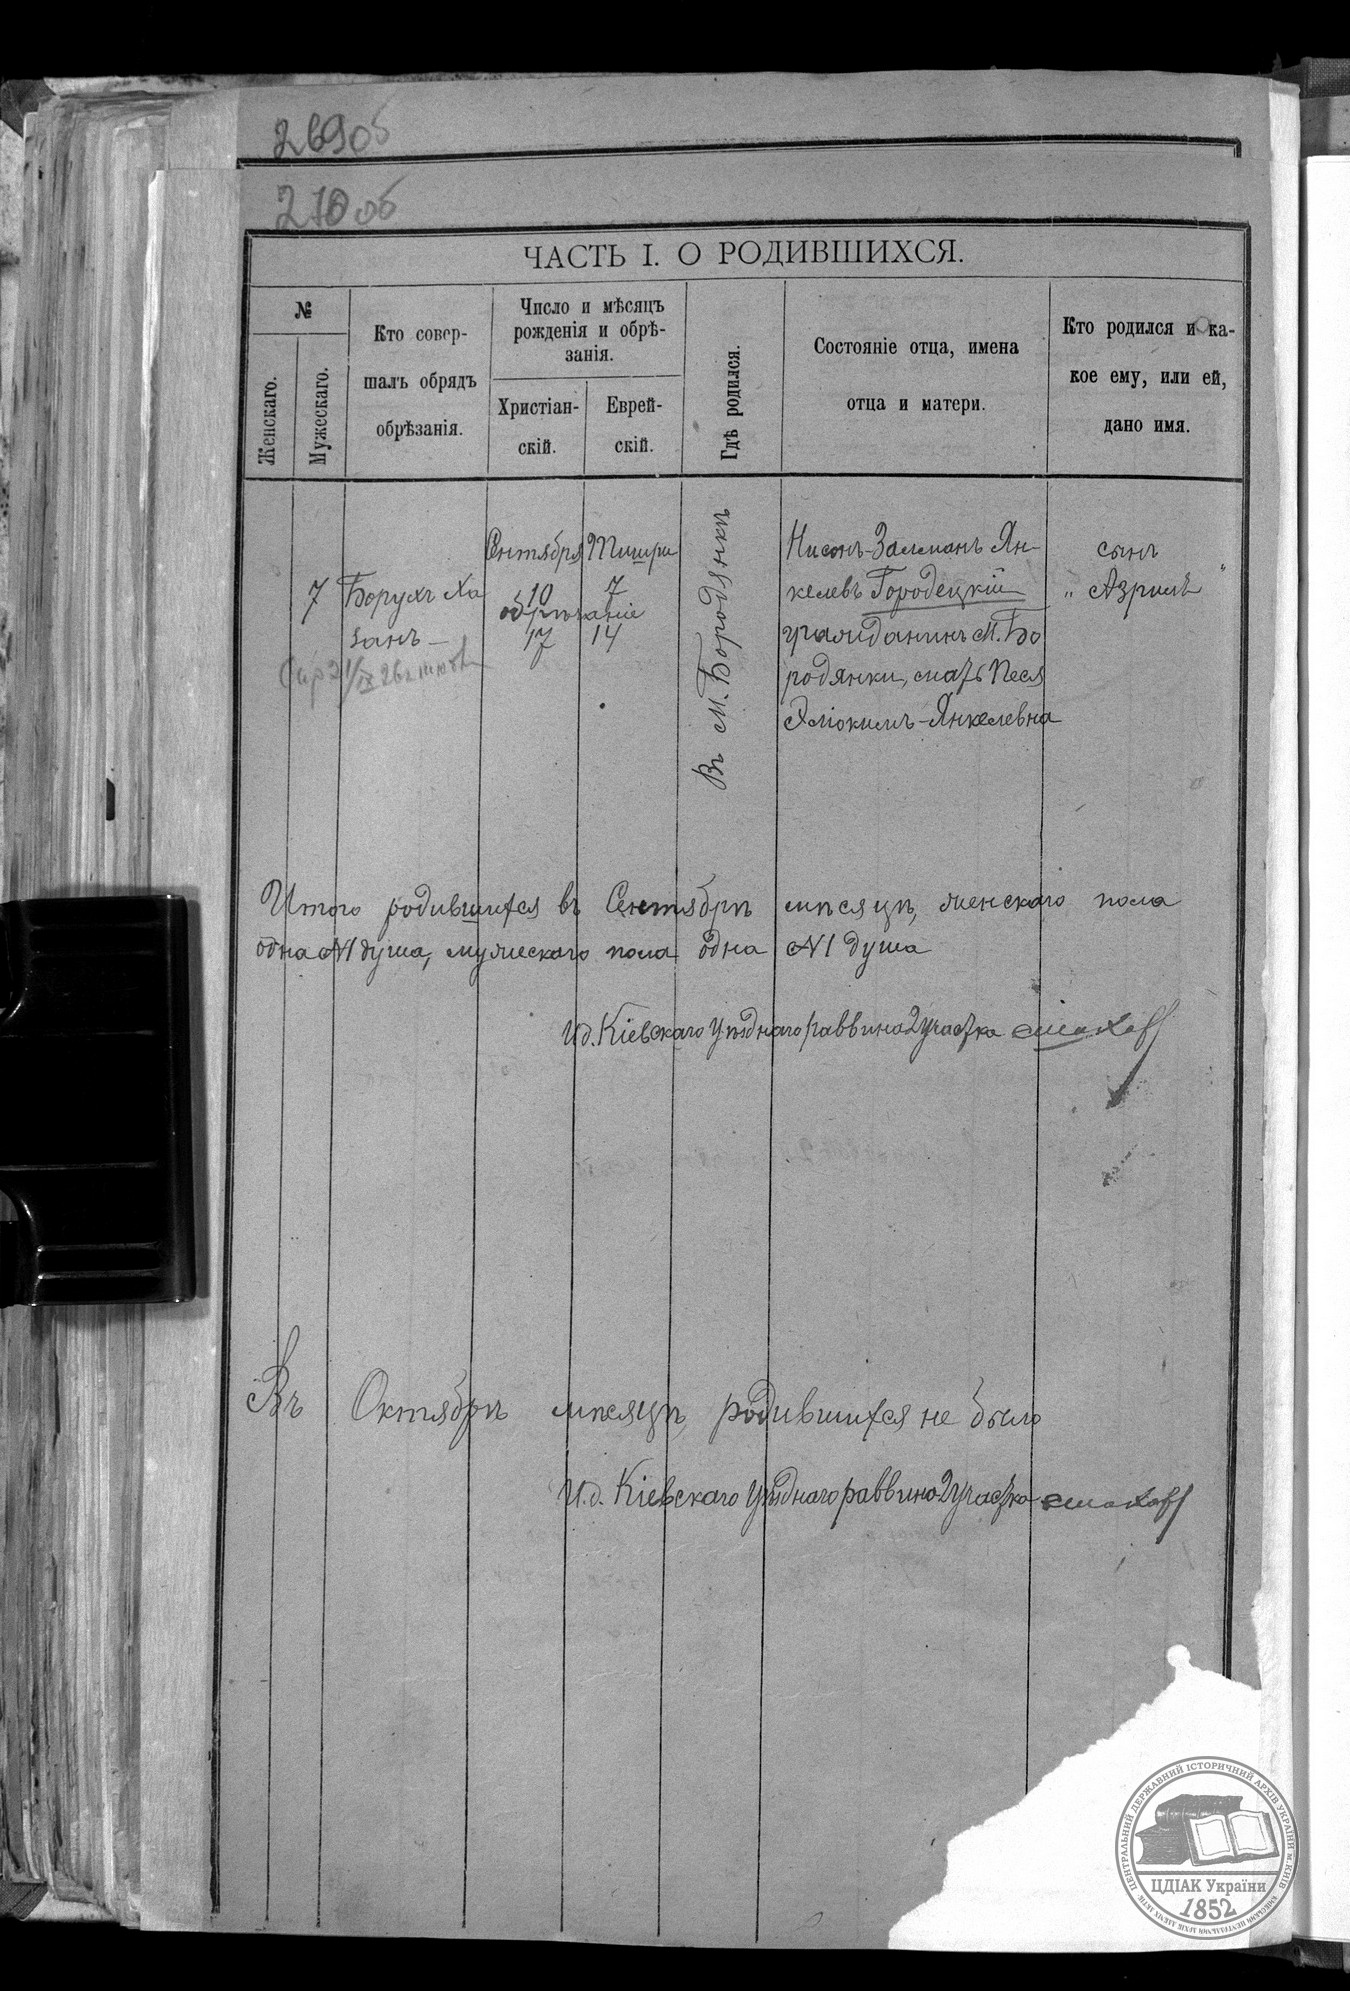 269об
270об
ЧАСТЬ I. О РОДИВШИХСЯ.
№
Женскаго.
Мужескаго.
Кто совер-
шалъ обрядъ
обрѣзанія.
Число и мѣсяцъ
рожденія и обрѣ-
занія.
Христіан-
скій.
Еврей-
скій.
Гдѣ родился.
Состояніе отца, имена
отца и матери.
Кто родился и ка-
кое ему, или ей,
дано имя.
7
Борухъ Ха
занъ
Сентября
10
обрѣзаніе
17
Тишри
7
14
Въ М. Бородянкѣ
Нисонъ-Залманъ Ян-
келевъ Городецкій
гражданинъ М. Бо
родянки, мать Песя
Эліокимъ-Янкелевна
сынъ
„ Азрилъ "
Итого родившихся въ Сентябрѣ мѣсяцѣ, женскаго пола
одна №1 душа, мужескаго пола одна №1 душа
И.д. Кіевскаго уѣзднаго раввина 2 участка
Въ Октябрѣ мѣсяцѣ родившихся не было
И.д. Кіевскаго уѣзднаго раввина 2 участка
ЦЕНТРАЛЬНИЙ ДЕРЖАВНИЙ ІСТОРИЧНИЙ АРХІВ УКРАЇНИ м.КИЇВ
ЦДІАК України
1852